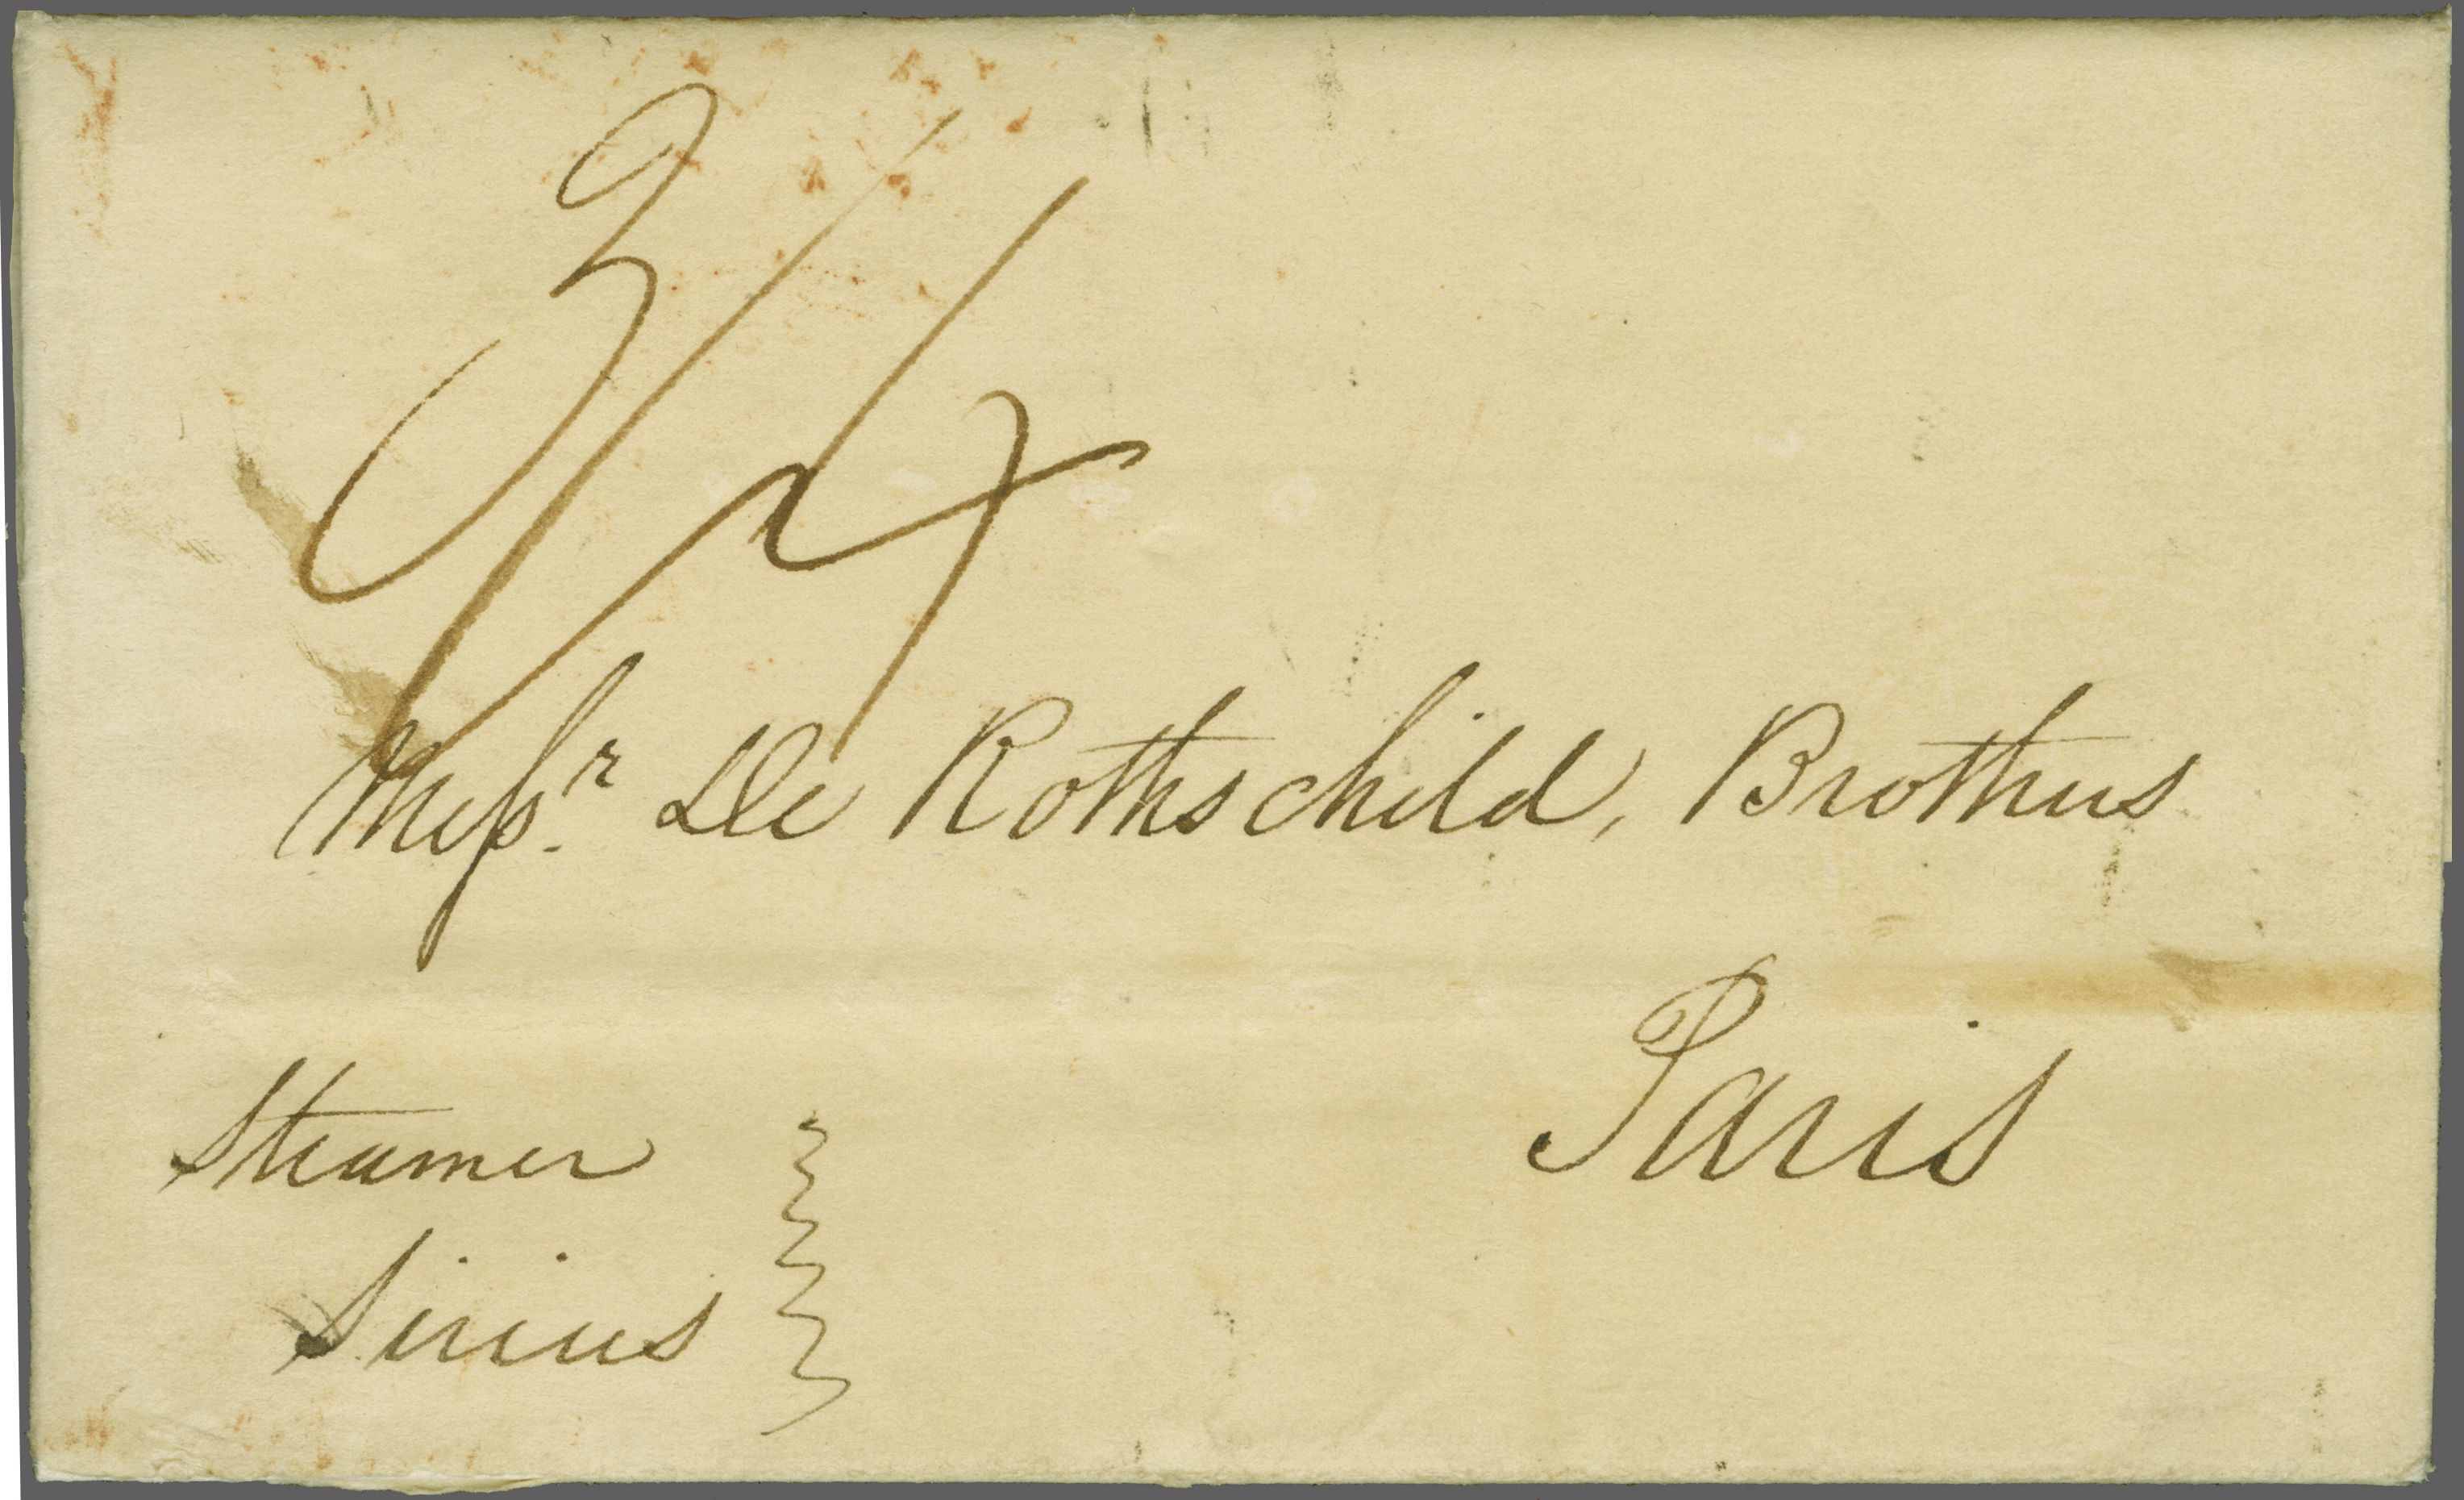 3/4
Messr. De Rothschild, Brothers
Paris
Steamer
Sirius